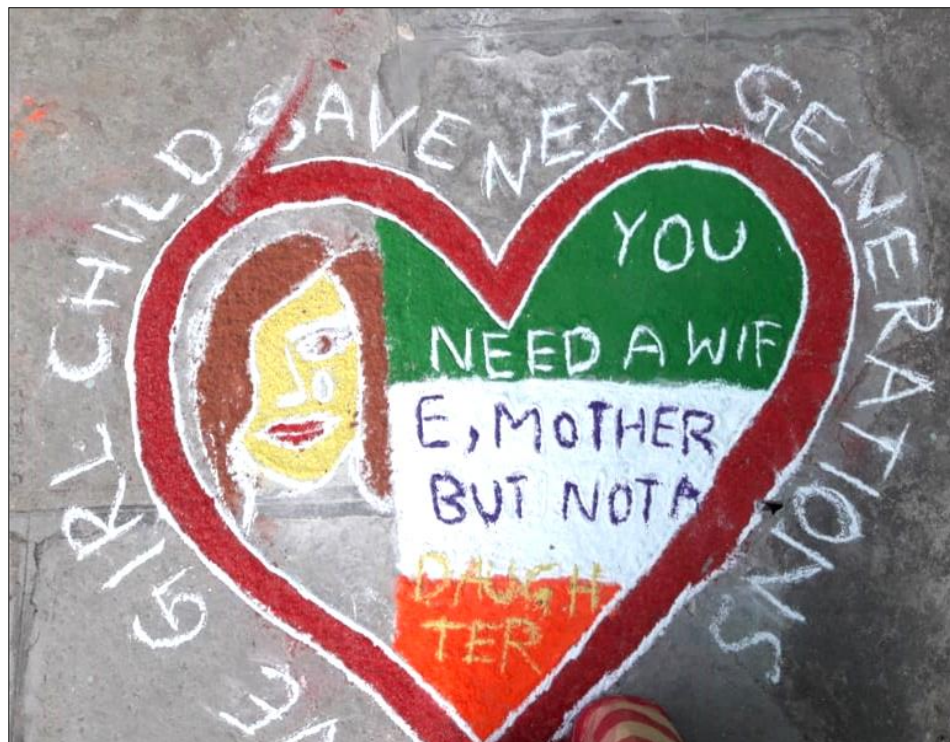 VE GIRL CHILD SAVE NEXT GENERATIONS
YOU
NEED A WIF
E, MOTHER
BUT NOT A
DAUGH
TER